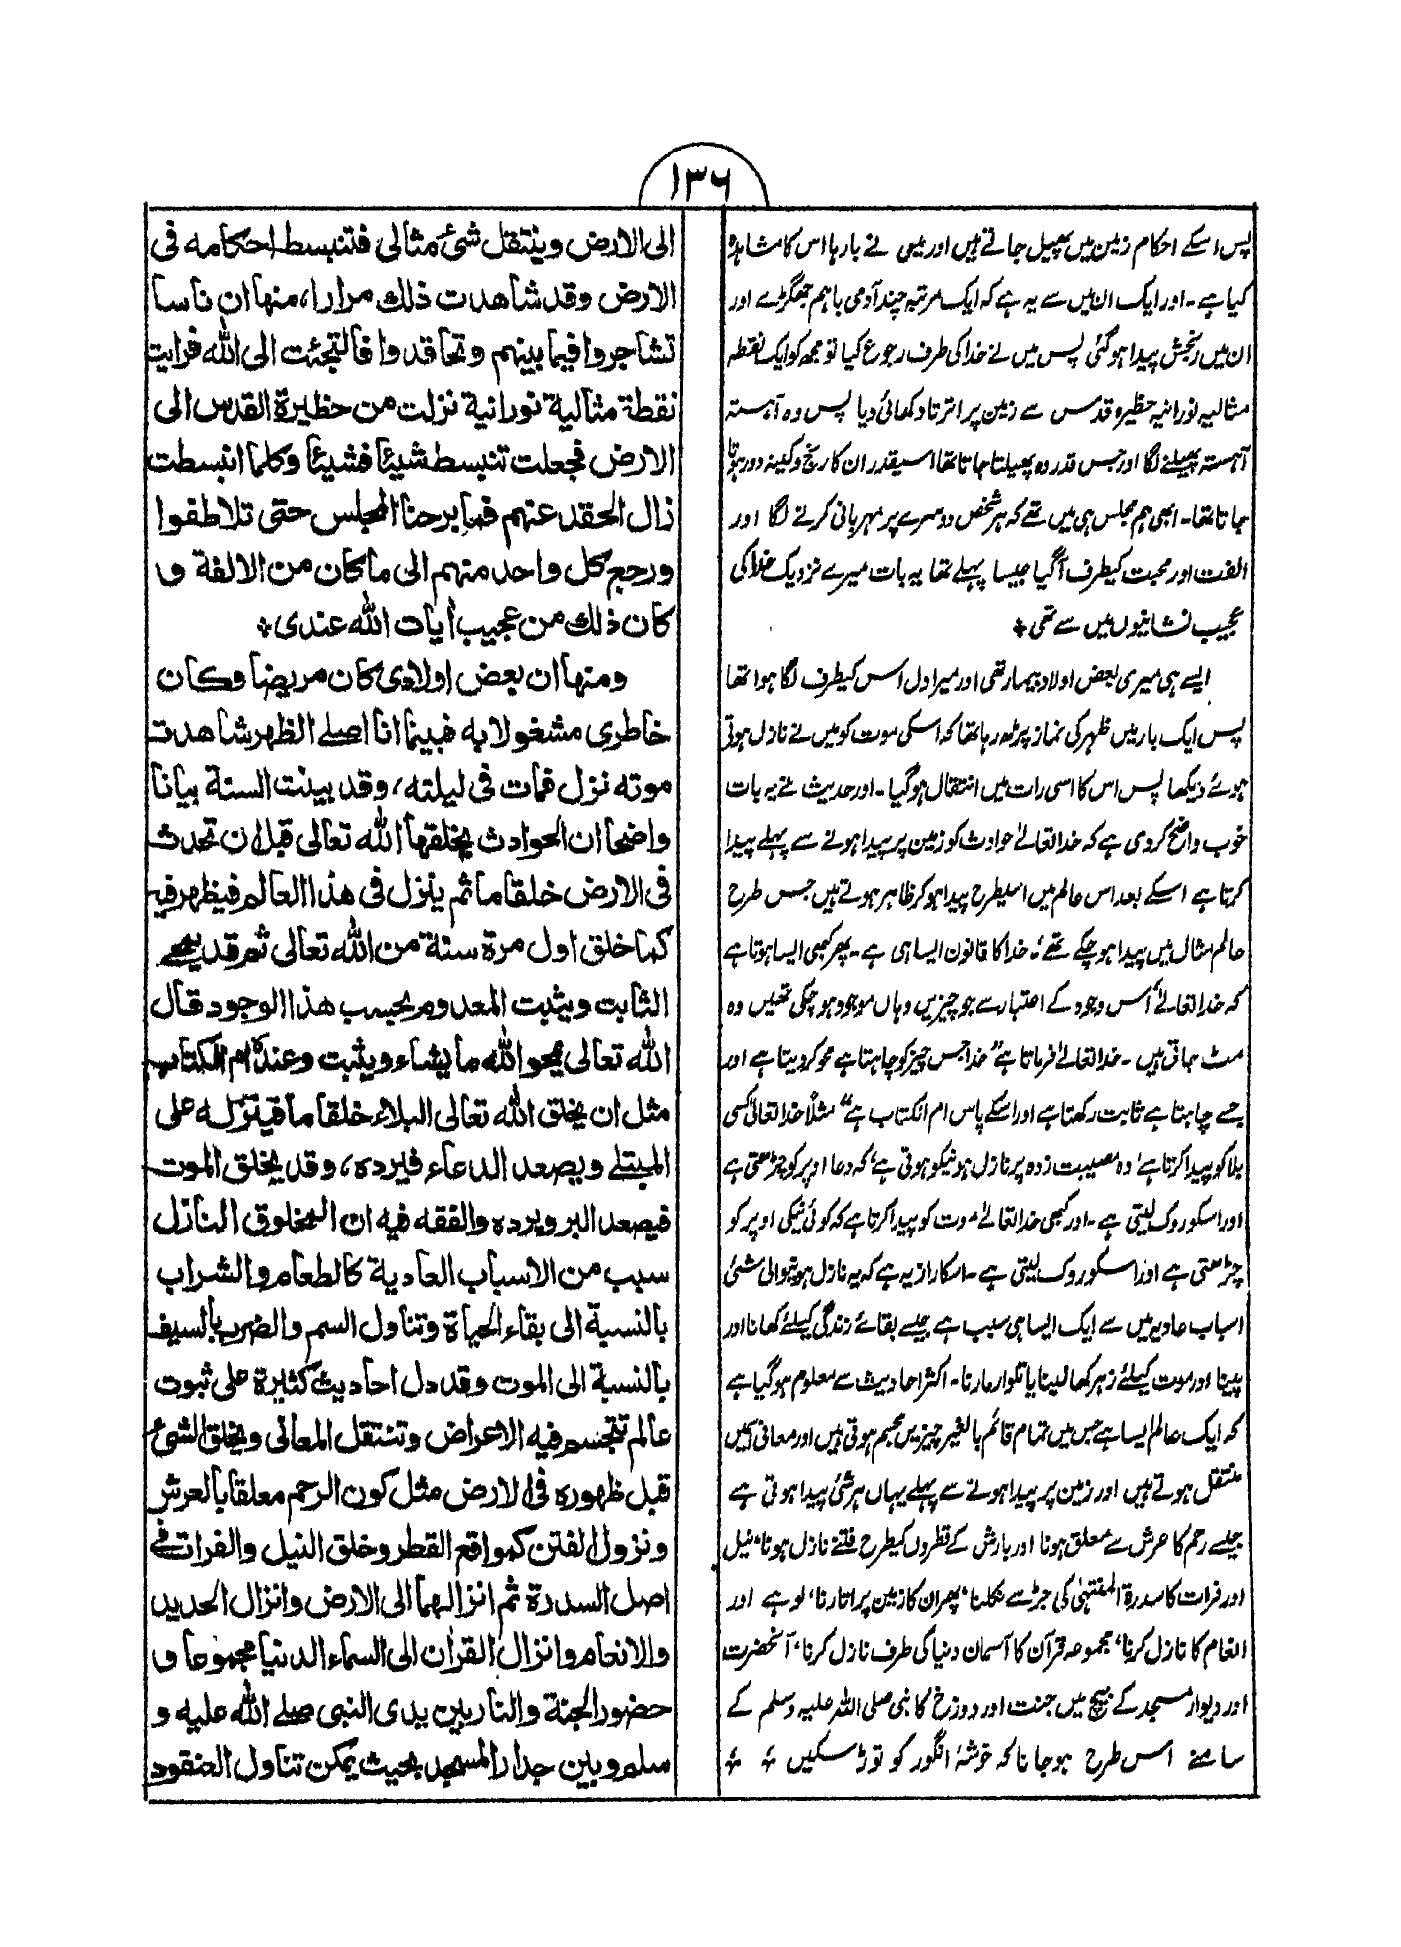 ۱۳۶
پس اسکے احکام زمین میں پھیل جاتے ہیں اور میں نے بارہا اس کا مشاہدہ
کیا ہے۔ اور ایک ان میں سے یہ ہے کہ ایک مرتبہ چند آدمی باہم جھگڑے اور
ان میں رنجش پیدا ہو گئی پس میں نے خدا کی طرف رجوع کیا تو مجھ کو ایک نقطہ
مثالیہ نورانیہ حظیرہ قدس سے زمین پر اترتا دکھائی دیا پس وہ آہستہ
آہستہ پھیلنے لگا اور جس قدر وہ پھیلتا جاتا تھا اسیقدر ان کا رنج و کینہ دور ہوتا
جاتا تھا۔ ابھی ہم مجلس ہی میں تھے کہ ہر شخص دوسرے پر مہربانی کرنے لگا اور
الفت اور محبت کیطرف آ گیا جیسا پہلے تھا یہ بات میرے نزدیک خدا کی
عجیب نشانیوں میں سے تھی *
ایسے ہی میری بعض اولاد بیمار تھی اور میرا دل اس کیطرف لگا ہوا تھا
پس ایک بار میں ظہر کی نماز پڑھ رہا تھا کہ اسکی موت کو میں نے نازل ہوتی
ہوئے دیکھا پس اس کا اسی رات میں انتقال ہو گیا۔ اور حدیث نے یہ بات
خوب واضح کر دی ہے کہ خدا تعالےٰ حوادث کو زمین پر پیدا ہونے سے پہلے پیدا
کرتا ہے اسکے بعد اس عالم میں اسیطرح پیدا ہو کر ظاہر ہوتے ہیں جس طرح
عالم مثال میں پیدا ہو چکے تھے، خدا کا قانون ایسا ہی ہے۔ پھر کبھی ایسا ہوتا ہے
کہ خدا تعالےٰ اس وجود کے اعتبار سے جو چیزیں وہاں موجود ہو چکی تھیں وہ
مٹ جاتی ہیں۔ خدا تعالےٰ فرماتا ہے "خدا جس چیز کو چاہتا ہے محو کر دیتا ہے اور
جسے چاہتا ہے ثابت رکھتا ہے اور اسکے پاس ام الکتاب ہے" مثلاً خدا تعالیٰ کسی
بلا کو پیدا کرتا ہے، وہ مصیبت زدہ پر نازل ہونیکو ہوتی ہے، کہ دعا اوپر کو چڑھتی ہے
اور اسکو روک لیتی ہے۔ اور کبھی خدا تعالےٰ موت کو پیدا کرتا ہے کہ کوئی نیکی اوپر کو
چڑھتی ہے اور اسکو روک لیتی ہے۔ اسکا راز یہ ہے کہ یہ نازل ہونیوالی شئی
اسباب عادیہ میں سے ایک ایسا ہی سبب ہے جیسے بقائے زندگی کیلئے کھانا اور
پینا اور موت کیلئے زہر کھا لینا یا تلوار مارنا۔ اکثر احادیث سے معلوم ہو گیا ہے
کہ ایک عالم ایسا ہے جس میں تمام قائم بالغیر چیزیں مجسم ہوتی ہیں اور معانی
منتقل ہوتے ہیں اور زمین پر پیدا ہونے سے پہلے یہاں ہر شئی پیدا ہوتی ہے
جیسے رحم کا عرش سے معلق ہونا اور بارش کے قطروں کیطرح فتنے نازل ہونا، نیل
اور فرات کا سدرۃ المنتہیٰ کی جڑ سے نکلنا، پھر ان کا زمین پر اتارنا، لوہے اور
انعام کا نازل کرنا، مجموعہ قرآن کا آسمان دنیا کی طرف نازل کرنا، آنحضرت
اور دیوار مسجد کے بیچ میں جنت اور دوزخ کا نبی صلی اللہ علیہ وسلم کے
سامنے اس طرح ہو جانا کہ خوشۂ انگور کو توڑ سکیں * *
الی الارض وینتقل شیٔ مثالی فتنبسط احکامه فی
الارض وقد شاهدت ذلك مرارا، منها ان ناسا
تشاجروا فیما بینهم وتحاقدوا فالتجئت الی الله فرایت
نقطة مثالیة نورانیة نزلت من حظیرة القدس الی
الارض فجعلت تنبسط شیئا فشیئا وکلما انبسطت
زال الحقد عنهم فما برحنا المجلس حتی تلاطفوا
ورجع کل واحد منهم الی ما کان من الالفة و
کان ذلك من عجیب اٰیات الله عندی *
ومنها ان بعض اولادی کان مریضا وکان
خاطری مشغولا به فبینما انا اصلی الظهر شاهدت
موته نزل فمات فی لیلته، وقد بینت السنة بیانا
واضحا ان الحوادث یخلقها الله تعالی قبل ان تحدث
فی الارض خلقا ما ثم ینزل فی هذا العالم فیظهر فیه
کما خلق اول مرة سنة من الله تعالی ثم قد یمحی
الثابت ویثبت المعدوم بحسب هذا الوجود قال
الله تعالی یمحو الله ما یشاء ویثبت وعنده ام الکتاب
مثل ان یخلق الله تعالی البلاء خلقا ما فینزله علی
المبتلے ویصعد الدعاء فیرده، وقد یخلق الموت
فیصعد البر ویرده والفقه فیه ان المخلوق النازل
سبب من الاسباب العادیة کالطعام والشراب
بالنسبة الی بقاء الحیاة وتناول السم والضرب بالسیف
بالنسبة الی الموت وقد دل احادیث کثیرة علی ثبوت
عالم تتجسم فیه الاعراض وتنتقل المعانی ویخلق الشیٔ
قبل ظهوره فی الارض مثل کون الرحم معلقا بالعرش
ونزول الفتن کمواقع القطر وخلق النیل والفرات فی
اصل السدرة ثم انزالهما الی الارض وانزال الحدید
والانعام وانزال القراٰن الی السماء الدنیا مجموعا و
حضور الجنة والنار بین یدی النبی صلے الله علیه و
سلم وبین جدار المسجد بحیث یمکن تناول العنقود